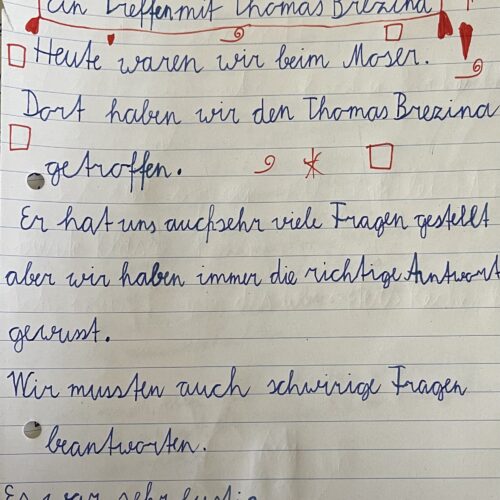 Ein Treffen mit Thomas Brezina
Heute waren wir beim Moser.
Dort haben wir den Thomas Brezina
getroffen.
Er hat uns auch sehr viele Fragen gestellt
aber wir haben immer die richtige Antwort
gewusst.
Wir mussten auch schwirige Fragen
beantworten.
Es war sehr lustig